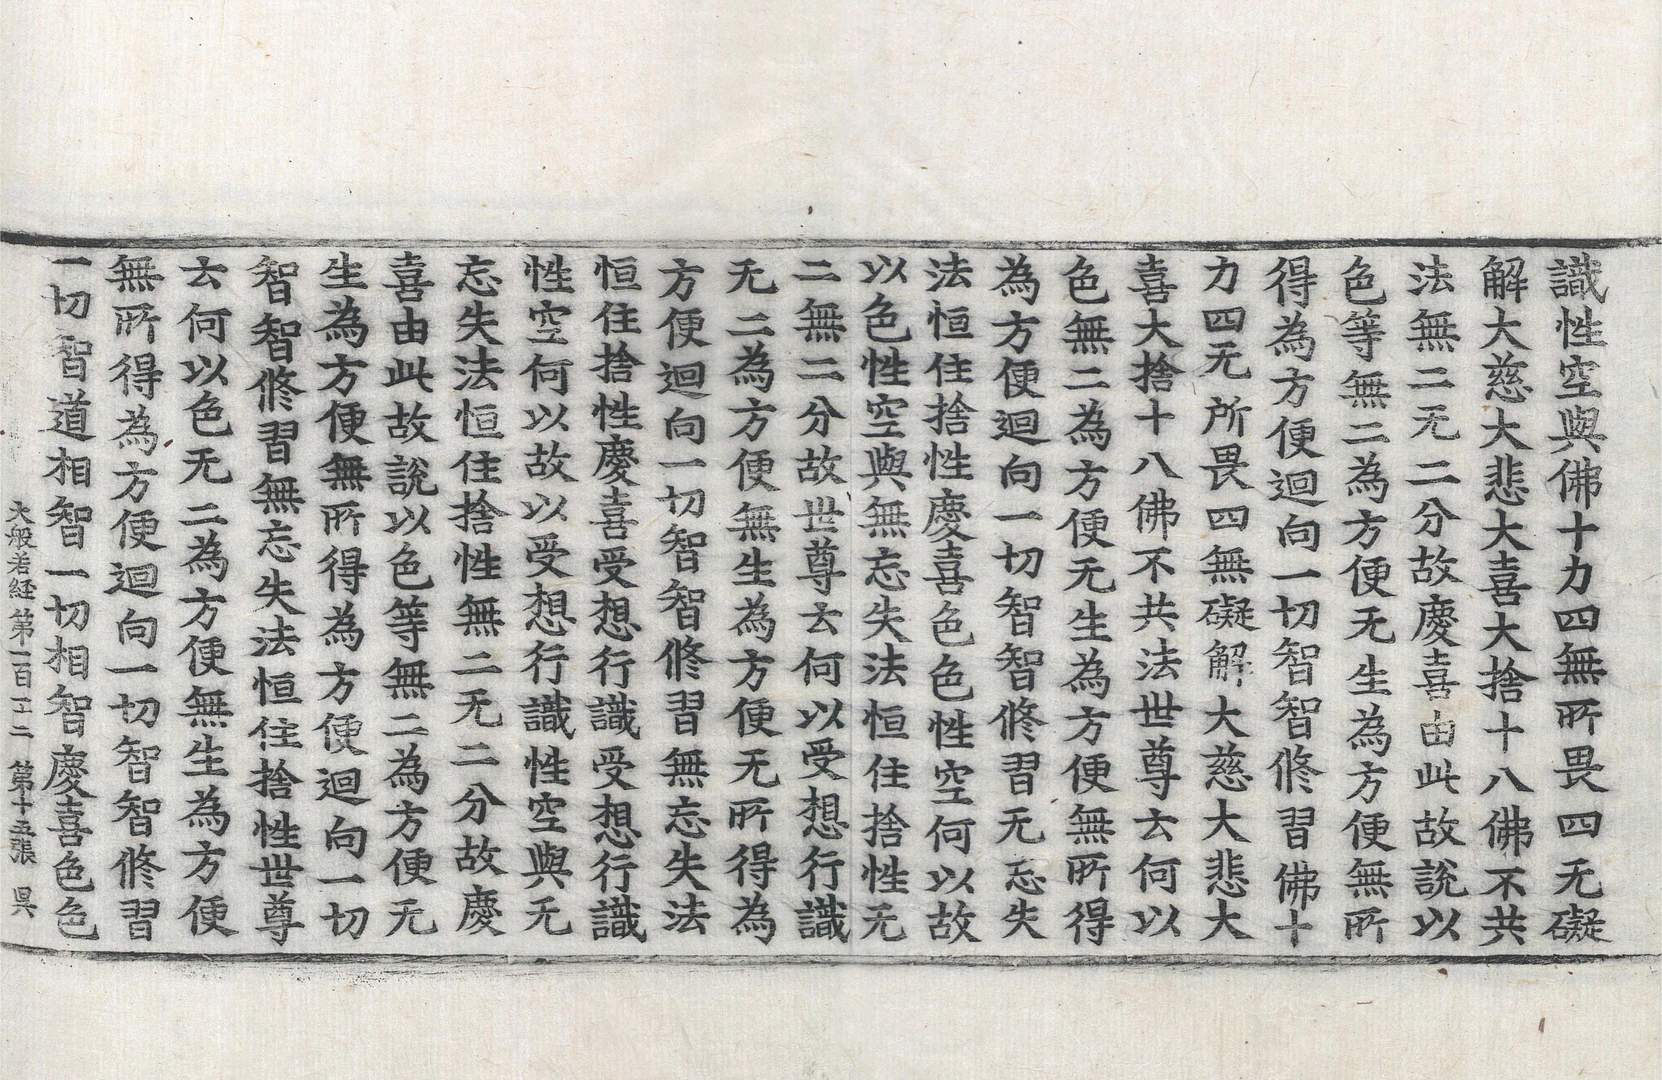 識性空與佛十力四無所畏四无礙
解大慈大悲大喜大捨十八佛不共
法無二无二分故慶喜由此故說以
色等無二為方便无生為方便無所
得為方便迴向一切智智修習佛十
力四无所畏四無礙解大慈大悲大
喜大捨十八佛不共法世尊云何以
色無二為方便无生為方便無所得
為方便迴向一切智智修習无忘失
法恒住捨性慶喜色色性空何以故
以色性空與無忘失法恒住捨性无
二無二分故世尊云何以受想行識
无二為方便無生為方便无所得為
方便迴向一切智智修習無忘失法
恒住捨性慶喜受想行識受想行識
性空何以故以受想行識性空與无
忘失法恒住捨性無二无二分故慶
喜由此故說以色等無二為方便无
生為方便無所得為方便迴向一切
智智修習無忘失法恒住捨性世尊
云何以色无二為方便無生為方便
無所得為方便迴向一切智智修習
一切智道相智一切相智慶喜色色
大般若経第一百一十二 第十五張 昃